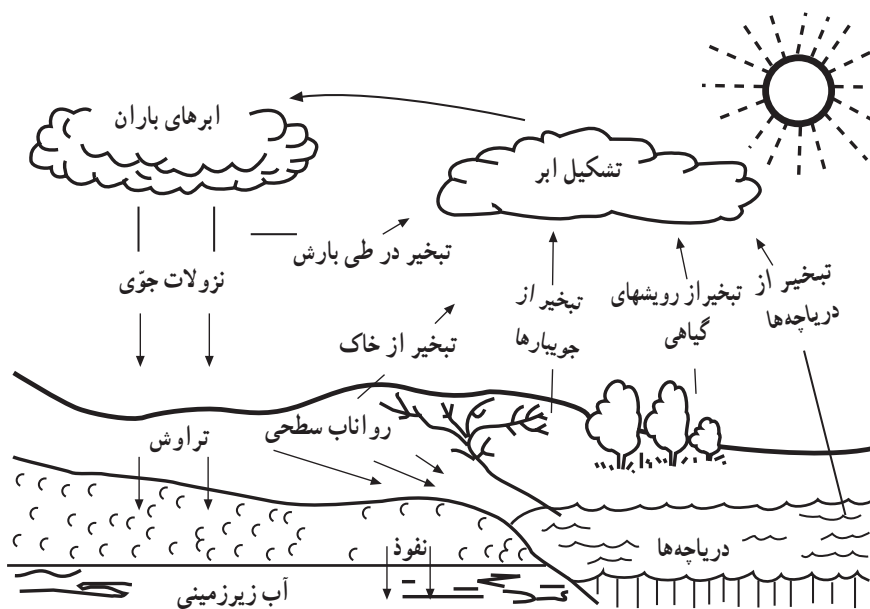 ابرهای باران
تشکیل ابر
تبخیر در طی بارش
نزولات جوّی
تبخیر از
دریاچه‌ها
تبخیر از رویشهای
گیاهی
تبخیر از
جویبارها
تبخیر از خاک
تراوش
رواناب سطحی
دریاچه‌ها
نفوذ
آب زیرزمینی